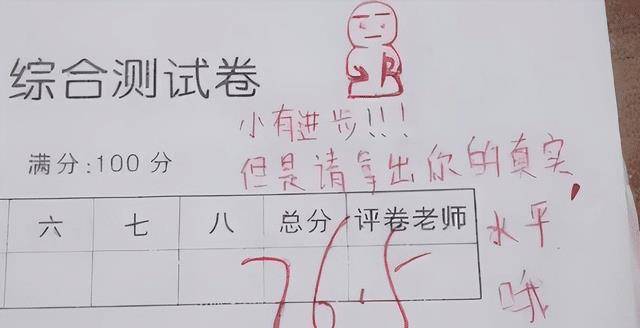 综合测试卷
小有进步!!!
满分:100 分
但是请拿出你的真实
水平
哦
六 七 八 总分 评卷老师
76.5